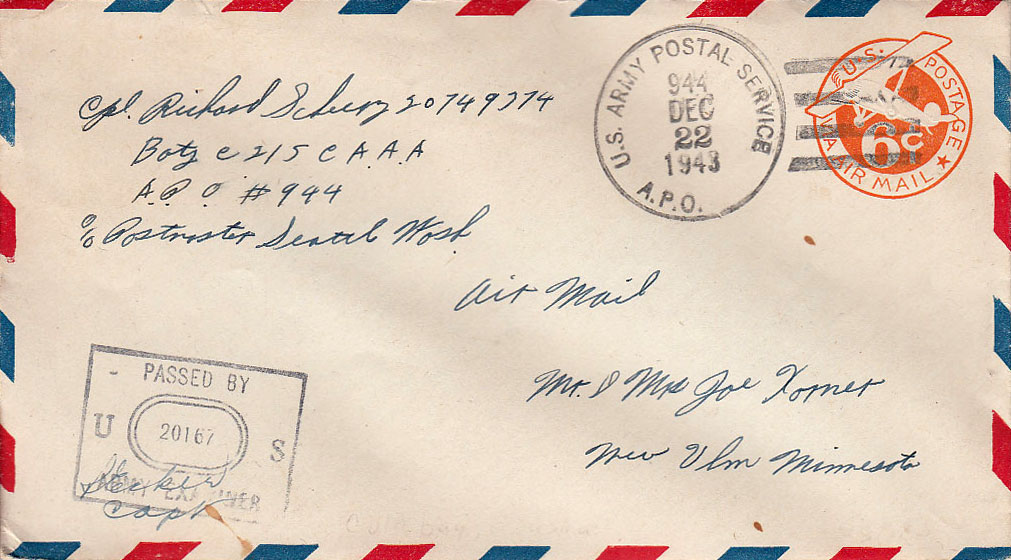 Cpl. Richard 20749374
Baty C 215 C A A A
A.P.O. #944
c/o Postmaster Seattle Wash
U.S. ARMY POSTAL SERVICE
944
DEC
22
1943
A.P.O.
U.S. POSTAGE
6¢
VIA AIR MAIL
Air Mail
Mr. & Mrs Joe
New Ulm Minnesota
PASSED BY
U 20167 S
ARMY EXAMINER
Capt